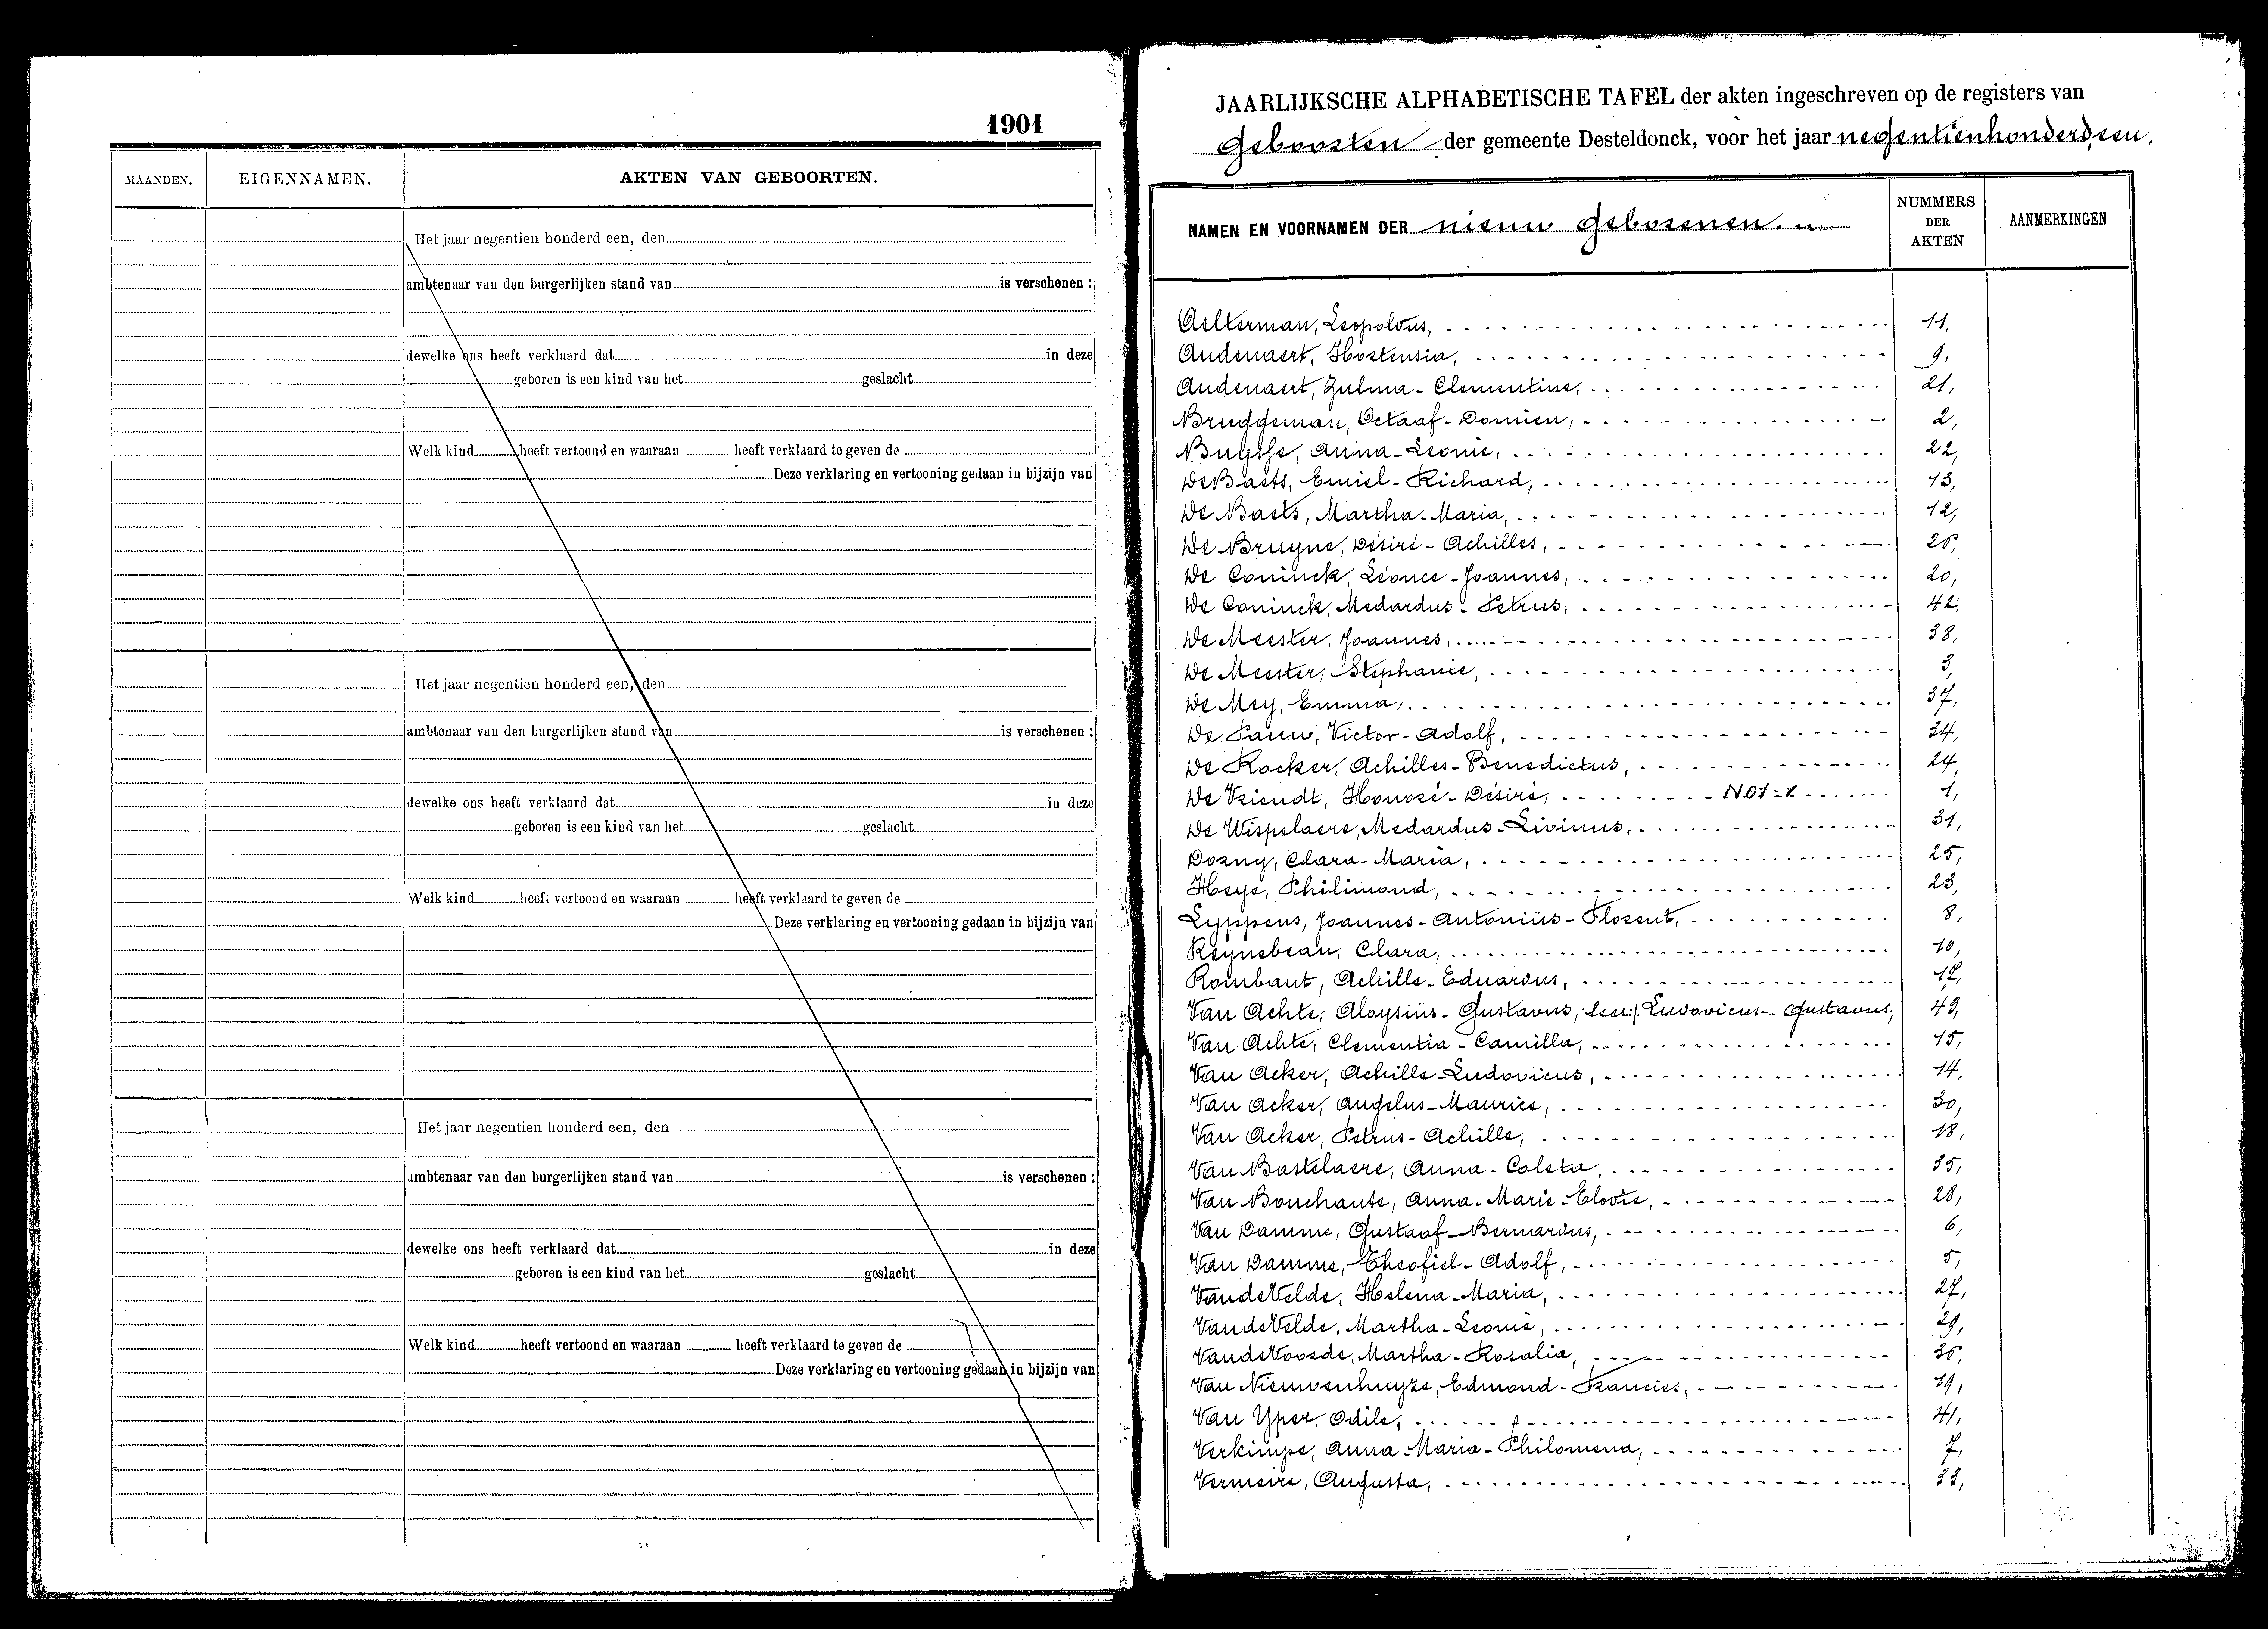 1901
MAANDEN. EIGENNAMEN. AKTEN VAN GEBOORTEN.
Het jaar negentien honderd een, den
ambtenaar van den burgerlijken stand van is verschenen :
dewelke ons heeft verklaard dat in deze
geboren is een kind van het geslacht
Welk kind heeft vertoond en waaraan heeft verklaard te geven de
Deze verklaring en vertooning gedaan in bijzijn van
Het jaar negentien honderd een, den
ambtenaar van den burgerlijken stand van is verschenen :
dewelke ons heeft verklaard dat in deze
geboren is een kind van het geslacht
Welk kind heeft vertoond en waaraan heeft verklaard te geven de
Deze verklaring en vertooning gedaan in bijzijn van
Het jaar negentien honderd een, den
ambtenaar van den burgerlijken stand van is verschenen :
dewelke ons heeft verklaard dat in deze
geboren is een kind van het geslacht
Welk kind heeft vertoond en waaraan heeft verklaard te geven de
Deze verklaring en vertooning gedaan in bijzijn van
JAARLIJKSCHE ALPHABETISCHE TAFEL der akten ingeschreven op de registers van
Geboorten der gemeente Desteldonck, voor het jaar negentienhonderdeen.
NAMEN EN VOORNAMEN DER nieuw geborenen. NUMMERS DER AKTEN AANMERKINGEN
Aelterman, Leopoldus, 11,
Audenaert, Hortensia, 9,
Audenaert, Zulma-Clementine, 21,
Bruggeman, Octaaf-Damien, 2,
Buysse, Anna-Leonie, 22,
De Baets, Emiel-Richard, 13,
De Baets, Martha-Maria, 12,
De Bruyne, Désiré-Achilles,
De Coninck, Léonce-Joannes, 20,
De Coninck, Medardus-Petrus, 42,
De Meester, Joannes, 38,
De Meester, Stephanie, 3,
De Mey, Emma, 37,
De Pauw, Victor-Adolf, 34,
De Rocker, Achilles-Benedictus, 24,
De Vriendt, Honoré-Désiré, N01-1 1,
De Wispelaere, Medardus-Livinus, 31,
Dozny, Clara-Maria, 25,
Heye, Philimond, 23,
Lyppens, Joannes-Antoniüs-Florent, 8,
Reynebeau, Clara, 10,
Rombaut, Achille-Eduardus, 17,
Van Achte, Aloysiüs-Gustavus, lees: Ludovicus-Gustavus, 43,
Van Achte, Clementia-Camilla, 15,
Van Acker, Achille-Ludovicus, 14,
Van Acker, Angelus-Maurice, 30,
Van Acker, Petrus-Achille, 18,
Van Bastelaere, Anna-Coleta, 35,
Van Bouchaute, Anna-Marie-Elodie, 28,
Van Damme, Gustaaf-Bernardus, 6,
Van Damme, Theofiel-Adolf, 5,
Van de Velde, Helena-Maria, 27,
Van de Velde, Martha-Leonie, 29,
Van de Voorde, Martha-Rosalia,
Van Nieuwenhuyze, Edmond-Francies, 19,
Van Yper, Odile, 41,
Verkimpe, Anna-Maria-Philomena, 7,
Vermeire, Augusta, 33,